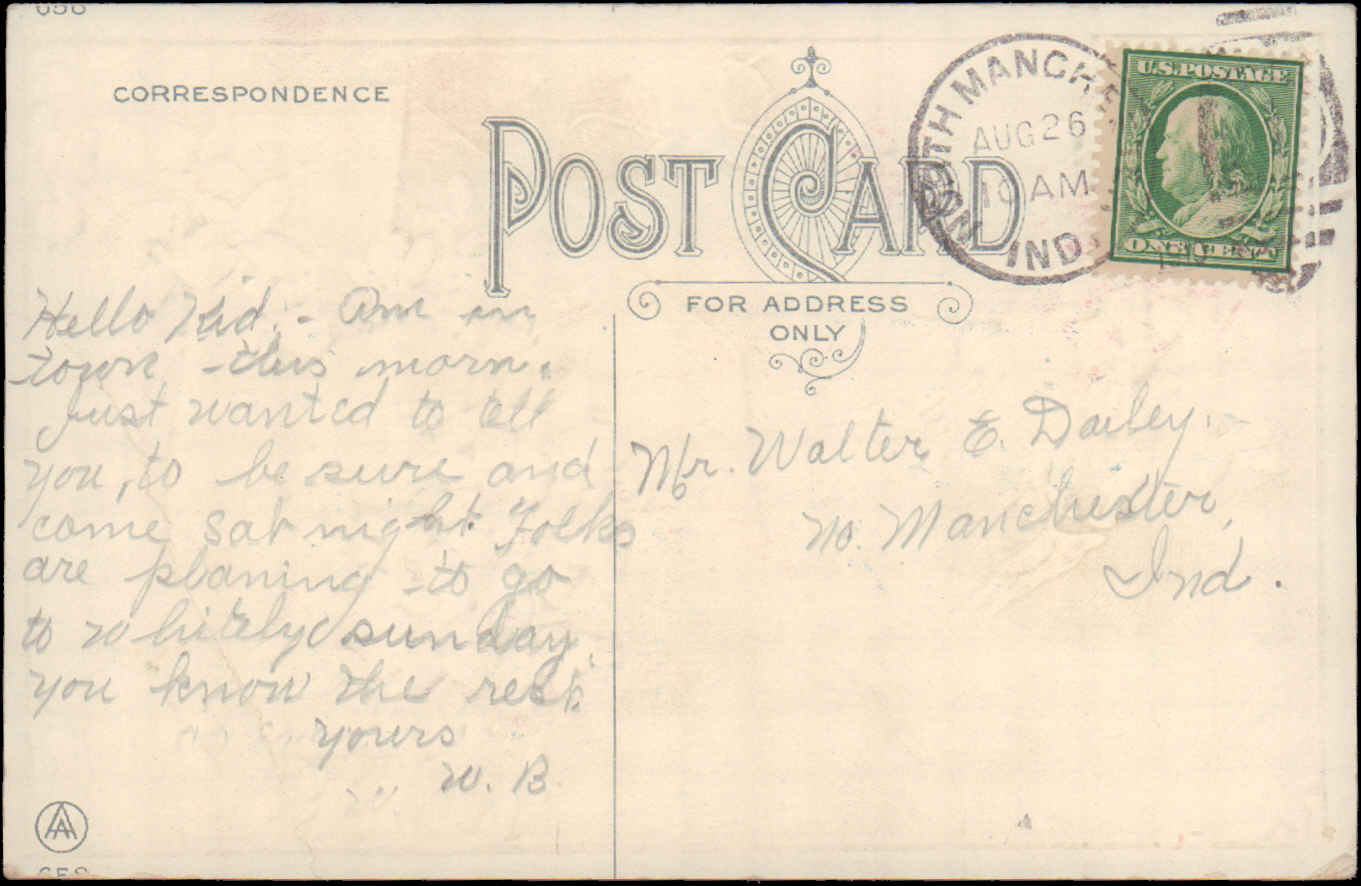 CORRESPONDENCE
POST CARD
FOR ADDRESS
ONLY
NORTH MANCHE
AUG 26
10 AM
IND
U.S. POSTAGE
ONE CENT
Hello Kid. - Am in
town this morn.
Just wanted to tell
you, to be sure and
come Sat night. Folks
are planing to go
to whitely sunday.
you know the rest.
yours
W. B.
Mr. Walter E. Dailey.
No. Manchester,
Ind.